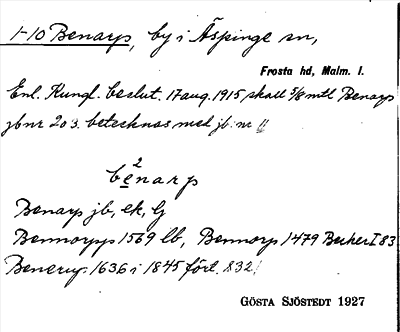 1-10 Benarp, by i Äspinge sn,
Frosta hd, Malm. l.
Enl. Kungl. beslut. 17 aug. 1915 skall 5/8 mtl Benarp
jbnr 203. betecknas med jb. nr 11
2
benarp
Benarp jb, ek, G
Bennorpp 1569 lb, Bennorp 1479 Becker I 83
Benerup 1636 i 1845 fört. 832
GÖSTA SJÖSTEDT 1927